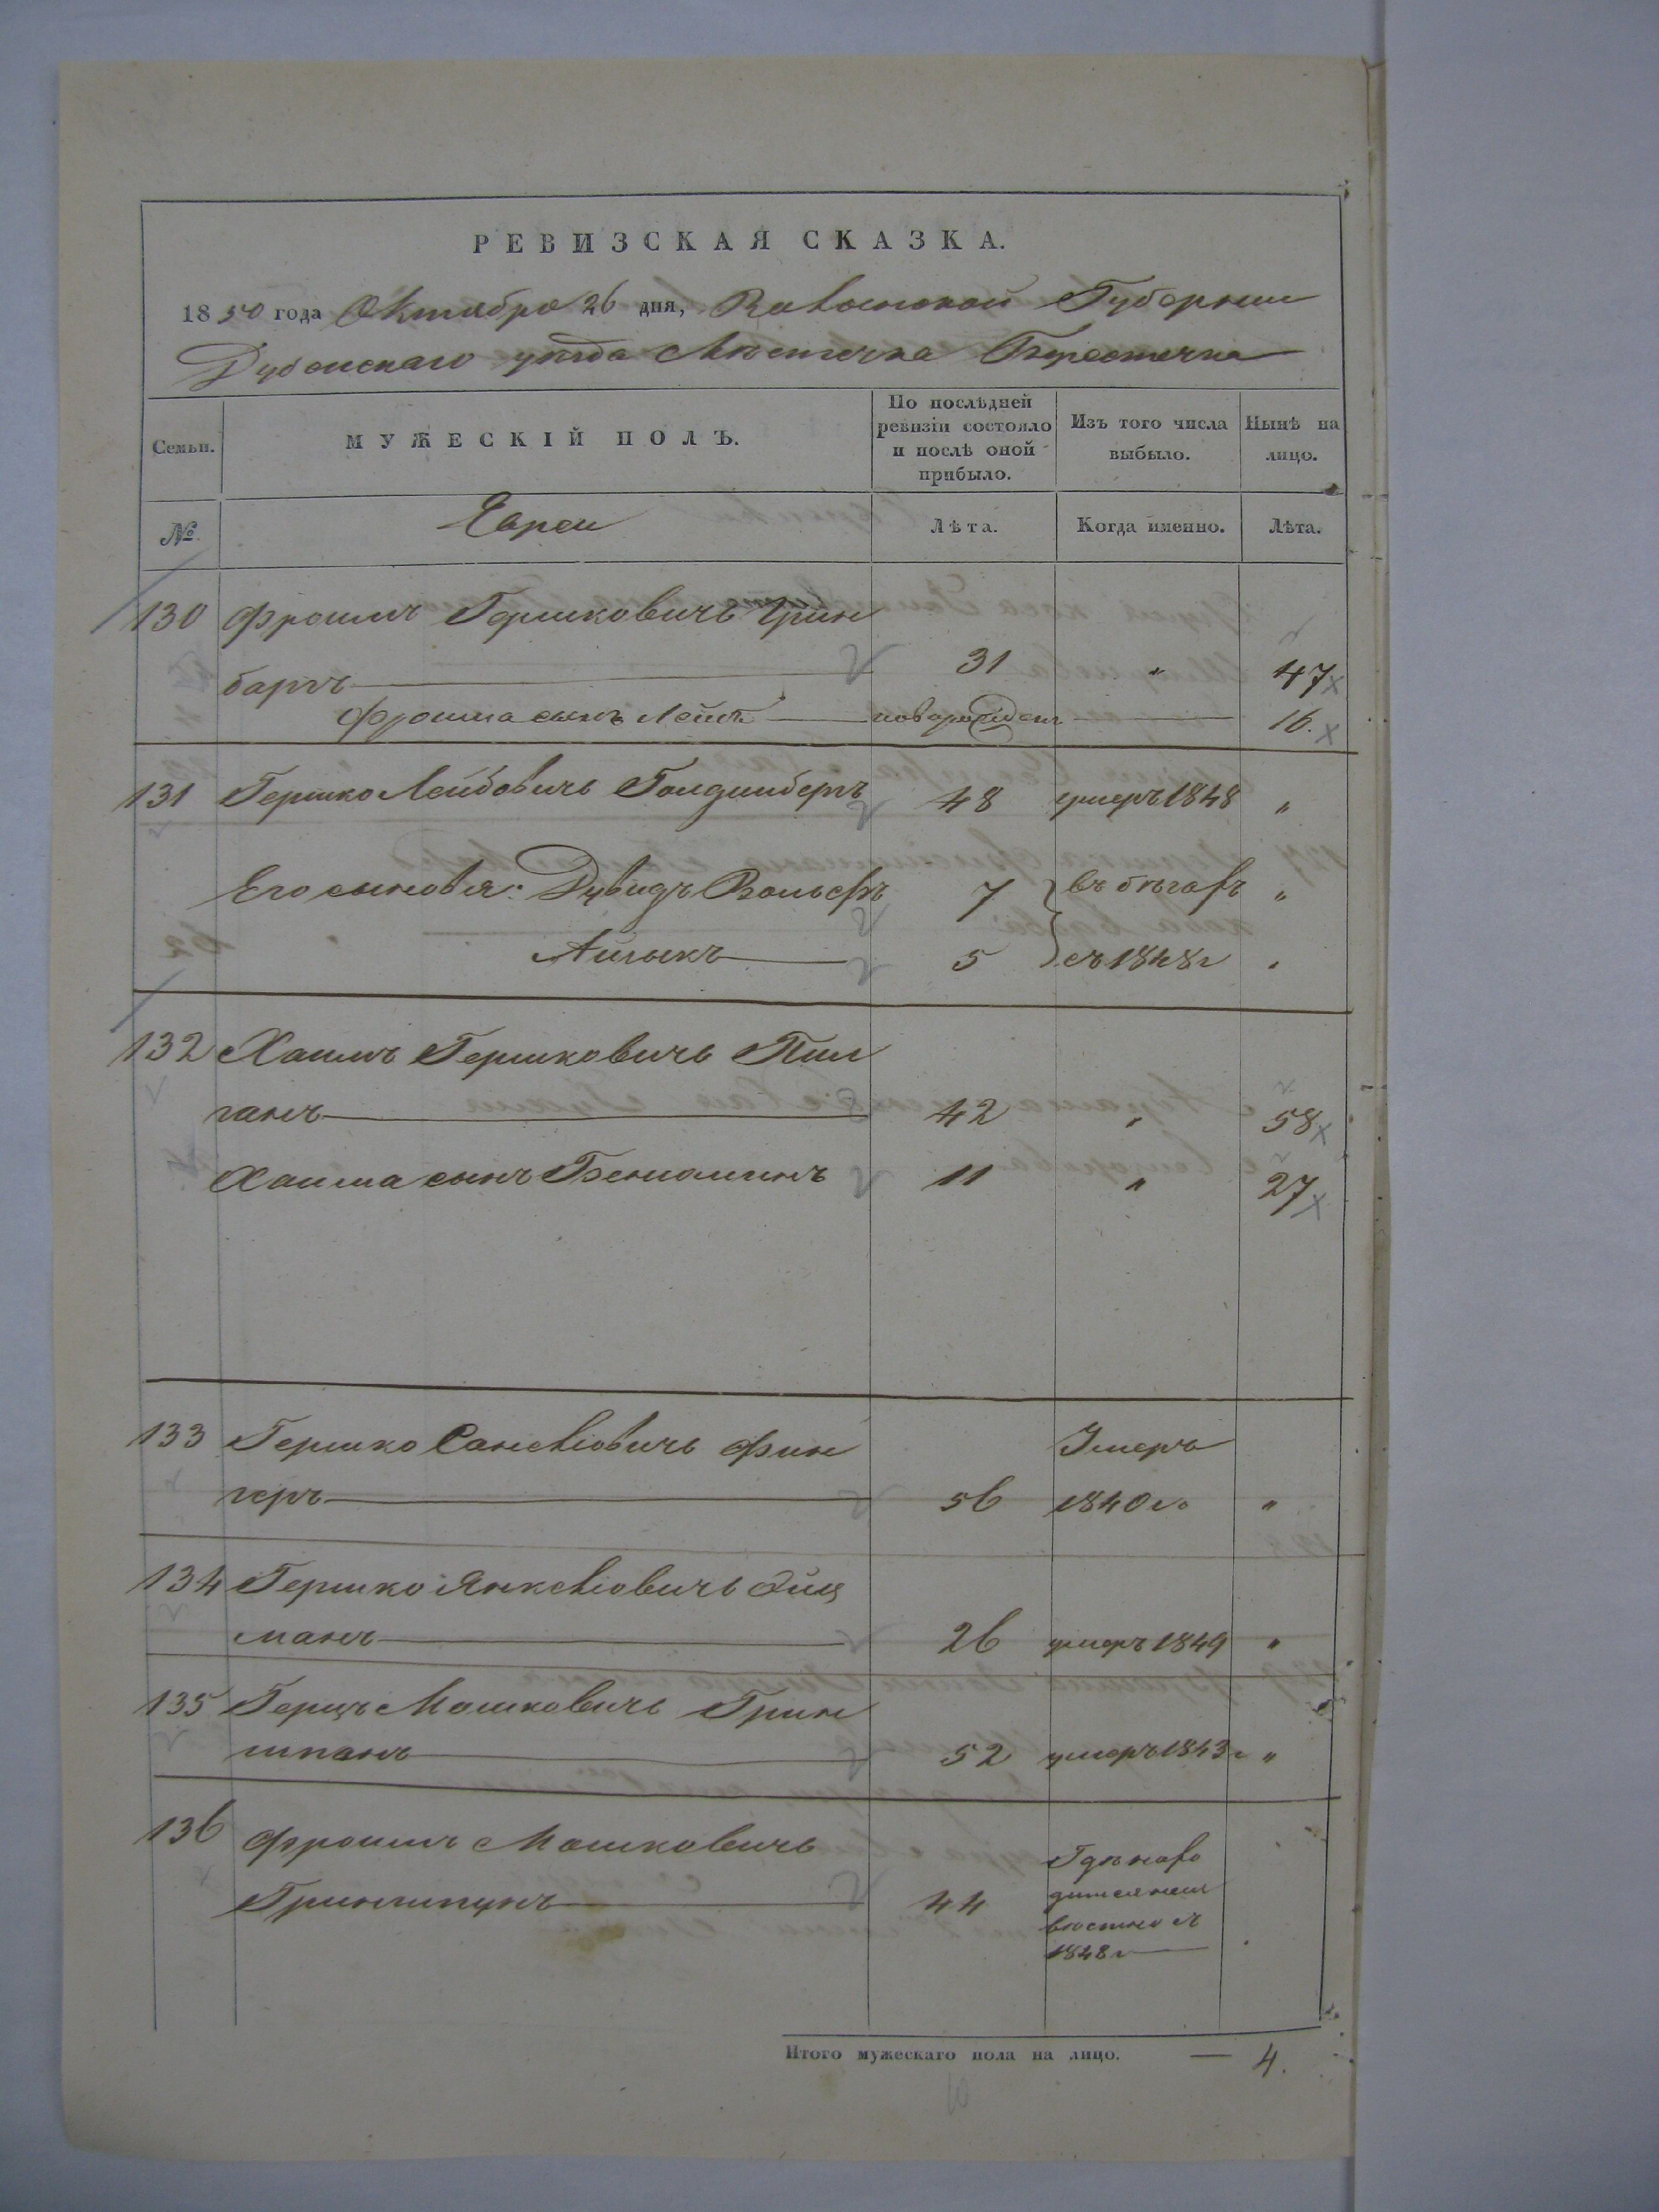 РЕВИЗСКАЯ СКАЗКА.
1850 года Октября 26 дня, Волынской Губернии
Дубенскаго уѣзда Мѣстечка Берестечка
Семьи.
МУЖЕСКІЙ ПОЛЪ.
По послѣдней ревизіи состояло и послѣ оной прибыло.
Изъ того числа выбыло.
Нынѣ на лицо.
№.
Евреи
Лѣта.
Когда именно.
Лѣта.
130 Фроимъ Гершковичъ Грин
баргъ 31 " 47
Фроима сынъ новорожден 16.
131 Гершко Лейбовичъ Голдинбергъ 48 умеръ 1848 "
Его сыновья: Дувидъ Вольфъ 7 въ бѣгахъ "
Айзыкъ 5 съ 1848г "
132 Хаимъ Гершковичъ
ганъ 42 " 58
Хаима сынъ Бениоминъ 11 " 27
133 Гершко Санелiовичъ Фин
геръ 56 Умеръ 1840г. "
134 Гершко Янкелiовичъ
манъ 26 умеръ 1849 "
135 Герцъ Мошковичъ Грин
шпанъ 52 умеръ 1843г "
136 Фроимъ Мошковичъ
Гриншпунъ 44 Гдѣ нахо
дится неиз
вѣстно съ
1848г
Итого мужескаго пола на лицо. — 4.